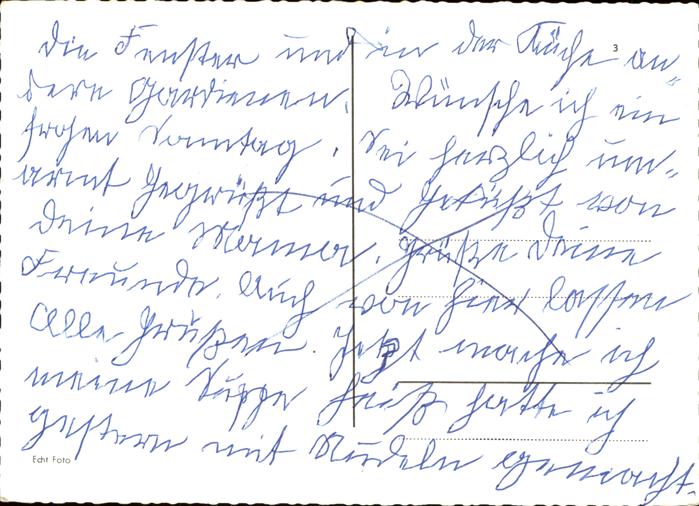 die Fenster und in der Küche an"
dere Gardienen. Wünsche ich ein
frohen Sonntag. Sei herzlich um"
armt gegrüßt und geküßt von
deine Mamma. Grüße deine
Freunde. Auch von hier lassen
Alle Grüßen. Jetzt mache ich
meine Suppe heiß hatte ich
gestern mit Nudeln gemacht.
3
Echt Foto